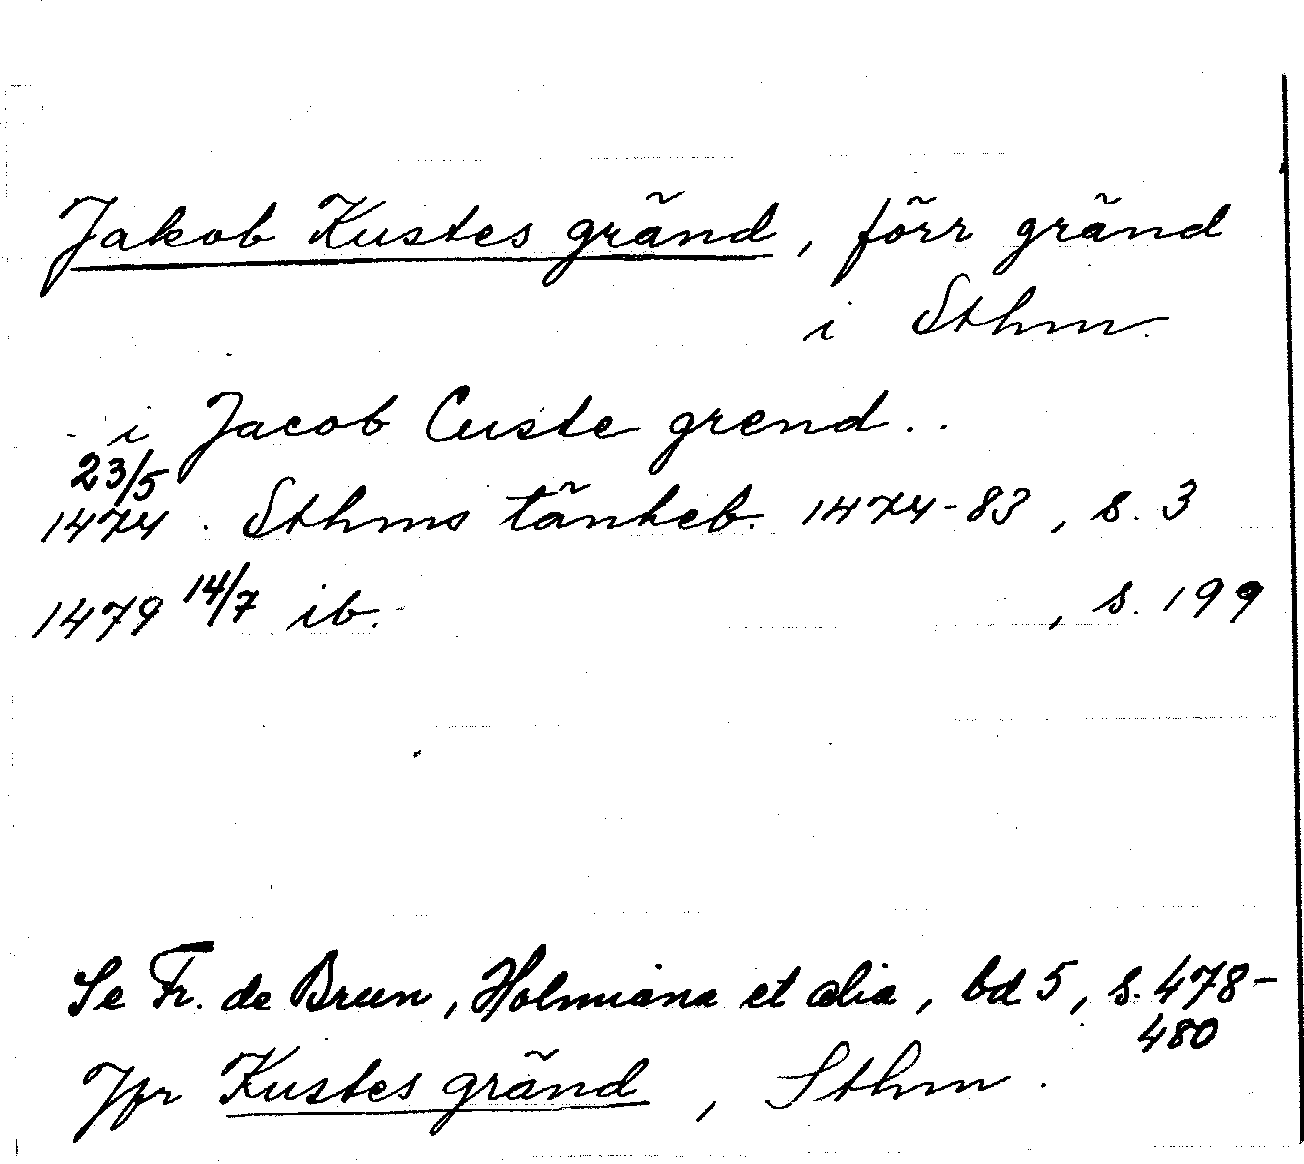 Jakob Kustes gränd, förr gränd
i Sthm.
i Jacob Custe grend..
23/5
1474. Sthms tänkeb. 1474-83, s. 3
1479 14/7 ib. , s. 199
Se Fr. de Brun, Holmiana et alia, bd 5, s. 478-
480
Jfr Kustes gränd, Sthm.